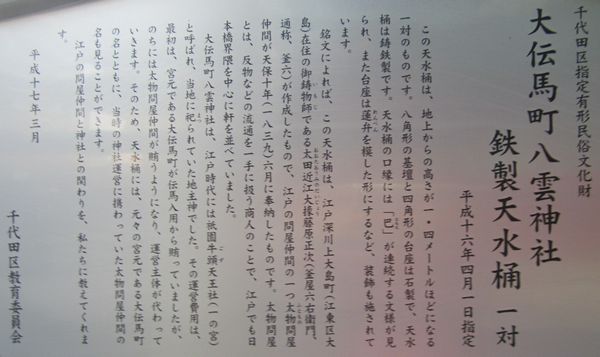 千代田区指定有形民俗文化財
大伝馬町八雲神社
鉄製天水桶 一対
平成十六年四月一日指定
この天水桶は、地上からの高さが一・四メートルほどになる
一対のものです。八角形の基壇と四角形の台座は石製で、天水
桶は鋳鉄製です。天水桶の口縁には「巴」が連続する文様が見
られ、また台座は蓮弁を模した形にするなど、装飾も施されて
います。
銘文によれば、この天水桶は、江戸深川上大島町（江東区大
島）在住の御鋳物師である太田近江大掾藤原正次（釜屋六右衛門、
通称、釜六）が作成したもので、江戸の問屋仲間の一つ太物問屋
仲間が天保十年（一八三九）六月に奉納したものです。太物問屋
とは、反物などの流通を一手に扱う商人のことで、江戸でも日
本橋界隈を中心に軒を並べていました。
大伝馬町八雲神社は、江戸時代には祇園牛頭天王社（一の宮）
と呼ばれ、当地に祀られていた地主神でした。その運営費用は、
最初は、宮元である大伝馬町が伝馬入用から賄っていましたが、
のちには太物問屋仲間が賄うようになり、運営主体が代わって
いきます。そのため、天水桶には、元々の宮元である大伝馬町
の名とともに、当時の神社運営に携わっていた太物問屋仲間の
名も見ることができます。
江戸の問屋仲間と神社との関わりを、私たちに教えてくれま
す。
平成十七年三月
千代田区教育委員会